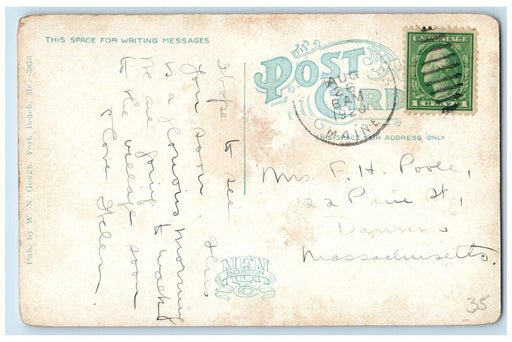 THIS SPACE FOR WRITING MESSAGES
Pub. by W. N. Gough, York Beach, Me.
Hope to see
you soon. This
is a glorious morning
We are going to walk
to the village soon
Love Helen.
POST
CARD
THIS SPACE FOR ADDRESS ONLY
AUG
6 AM
1920
MAINE
U.S. POSTAGE
1 CENT 1
Mrs. F. H. Poole,
22 Pine St,
Danvers
Massachusetts.
BOSTON
35